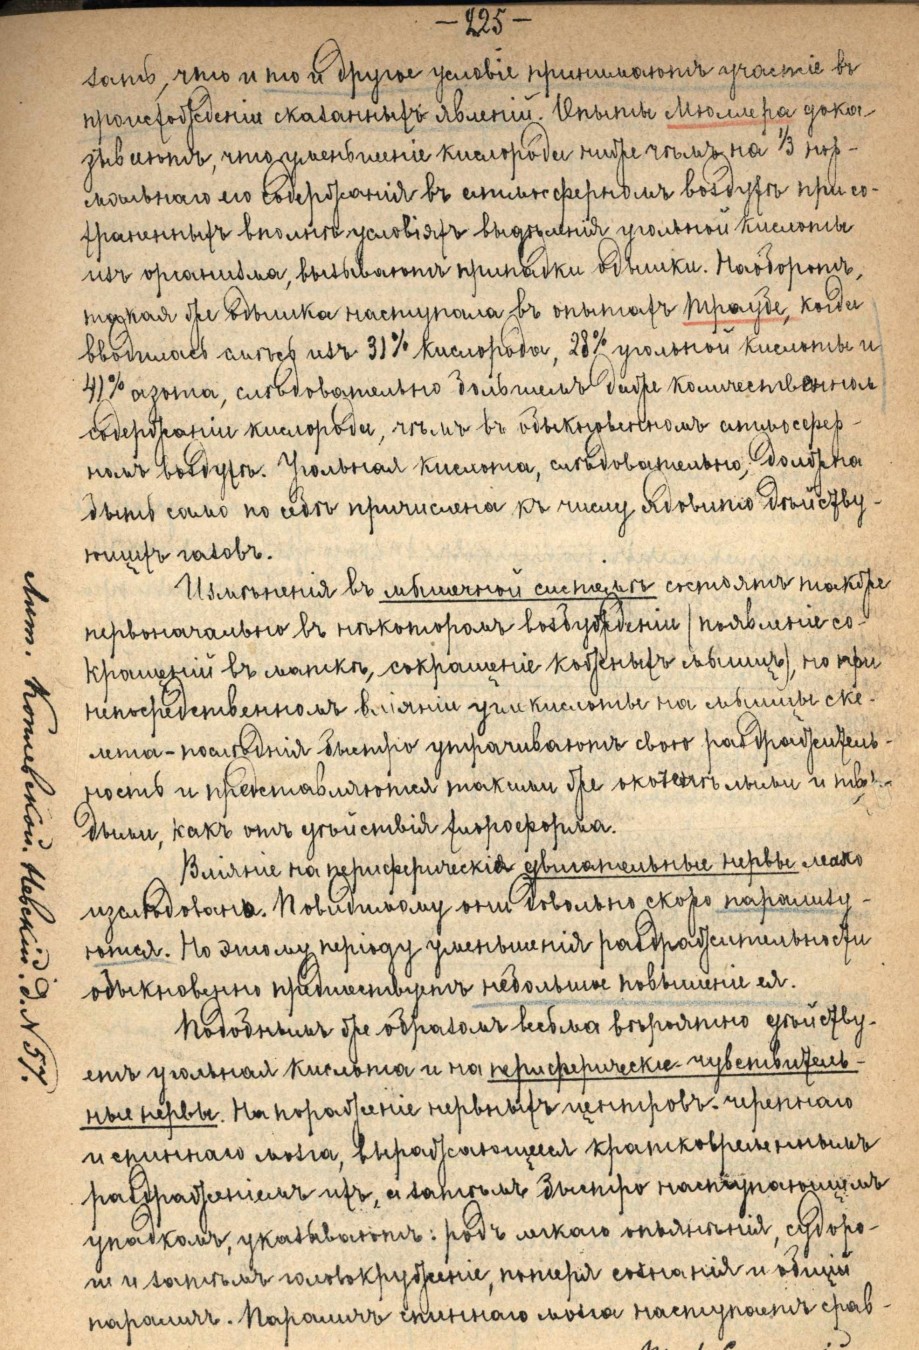 — 225 —
зать, что и то и другое условіе принимаютъ участіе въ
происхожденіи сказанныхъ явленій. Опыты Мюллера дока-
зываютъ, что уменьшеніе кислорода ниже чѣмъ на ⅓ нор-
мальнаго его содержанія въ атмосферномъ воздухѣ при со-
храненныхъ вполнѣ условіяхъ выдѣленія угольной кислоты
изъ организма, вызываютъ припадки одышки. Наоборотъ,
такая же одышка наступала въ опытахъ Траубе, когда
вводилась смѣсь изъ 31% кислорода, 28% угольной кислоты и
41% азота, слѣдовательно большемъ даже количественномъ
содержаніи кислорода, чѣмъ въ обыкновенномъ атмосфер-
номъ воздухѣ. Угольная кислота, слѣдовательно, должна
быть само по себѣ причислена къ числу ядовито дѣйству-
ющихъ газовъ.
Измѣненія въ мышечной системѣ состоятъ также
первоначально въ нѣкоторомъ возбужденіи (появленіе со-
кращеній въ маткѣ, сокращеніе кожныхъ мышцъ), но при
непосредственномъ вліяніи угл. кислоты на мышцы ске-
лета - послѣднія быстро утрачиваютъ свою раздражитель-
ность и представляются такими же окоченѣлыми и твер-
дыми, какъ отъ дѣйствія хлороформа.
Вліяніе на периферическія двигательные нервы мало
изслѣдовано. Повидимому они довольно скоро парализу-
ются. Но этому періоду уменьшенія раздражительности
обыкновенно предшествуетъ небольшое повышеніе ея.
Подобнымъ же образомъ весьма вѣроятно дѣйству-
етъ угольная кислота и на периферические чувствитель-
ные нервы. На пораженіе нервныхъ центровъ - черепнаго
и спиннаго мозга, выражающееся кратковременнымъ
раздраженіемъ ихъ, а затѣмъ быстро наступающимъ
упадкомъ, указываютъ: родъ легкаго опьянѣнія, судоро-
ги и затѣмъ головокруженіе, потеря сознанія и общій
параличъ. Параличъ спиннаго мозга наступаетъ срав-
Лит. Невскій. д. N 57.